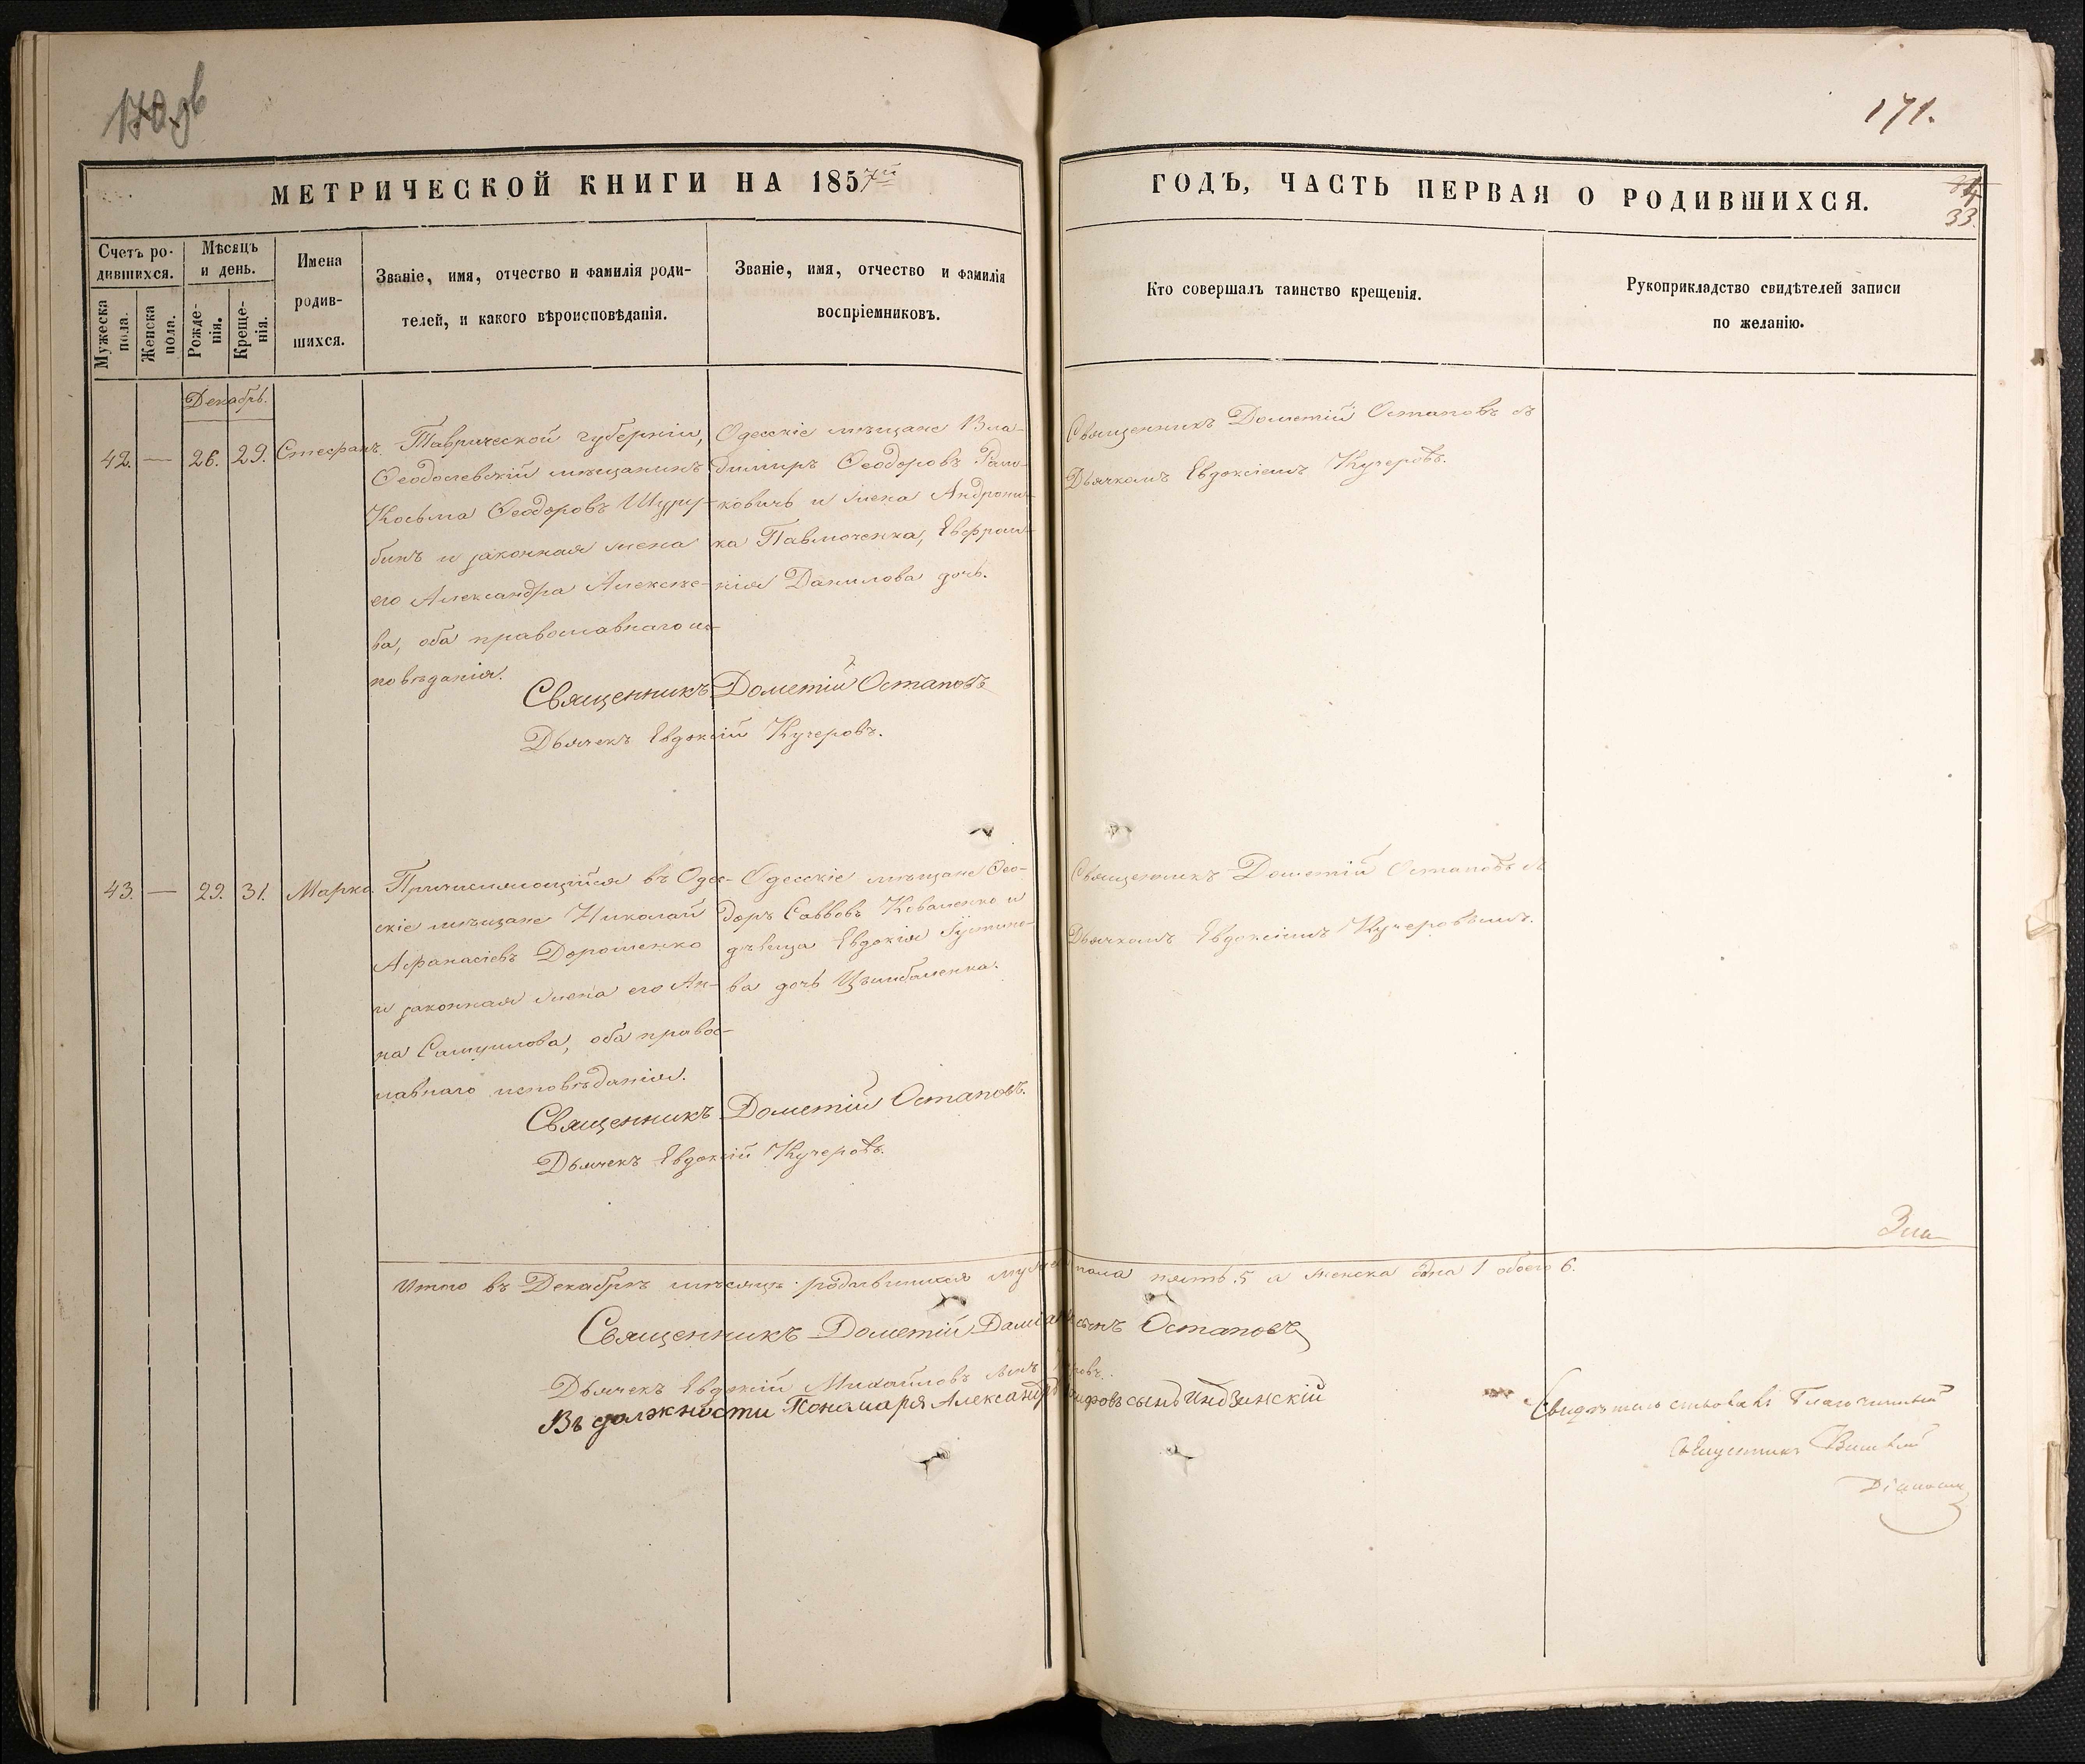 170 об
171.
МЕТРИЧЕСКОЙ КНИГИ НА 1857й
ГОДЪ, ЧАСТЬ ПЕРВАЯ О РОДИВШИХСЯ.
33.
Счетъ ро-
дившихся.
Мужеска
пола.
Женска
пола.
Мѣсяцъ
и день.
Рожде-
нія.
Креще-
нія.
Имена
родив-
шихся.
Званіе, имя, отчество и фамилія роди-
телей, и какого вѣроисповѣданія.
Званіе, имя, отчество и фамилія
воспріемниковъ.
Кто совершалъ таинство крещенія.
Рукоприкладство свидѣтелей записи
по желанію.
Декабрь.
42. — 26. 29. Стефанъ.
Таврической губерніи,
Ѳеодосевскій мѣщанинъ
Косьма Ѳеодоровъ Шуру-
бинъ и законная жена
его Александра Алексѣе-
ва, оба православнаго ис-
повѣданія.
Одесскіе мѣщане Вла-
димиръ Ѳеодоровъ
ковичь и жена Андрони-
ка Павлюченка, Евфрос-
нія Данилова дочь.
Священникъ Дометій Остаповъ съ
Дьячкомъ Евдокіемъ Кучеровъ.
Священникъ Дометій Остаповъ
Дьячекъ Евдокій Кучеровъ.
43. — 29. 31. Марко.
Причисляющійся въ Одес-
скіе мѣщане Николай
Афанасіевъ Дорошенко
и законная жена его Ан-
на Самуилова, оба правос-
лавнаго исповѣданія.
Одесскіе мѣщане Ѳео-
доръ Саввовъ Коваленко и
дѣвица Евдокія Іустино-
ва дочь Цымбаленка.
Священникъ Дометій Остаповъ съ
Дьячкомъ Евдокіимъ Кучеровымъ.
Священникъ Дометій Остаповъ.
Дьячекъ Евдокій Кучеровъ.
Итого въ Декабрѣ мѣсяцѣ родившихся мужеска пола пять 5 а женска одна 1 обоего 6.
Священникъ Дометій Даміановъ сынъ Остаповъ
Дьячекъ Евдокій Михайловъ сынъ Кучеровъ.
Въ должности Пономаря Александръ сынъ Индзинскій
Свидѣтельствовалъ Благочинный
Священникъ